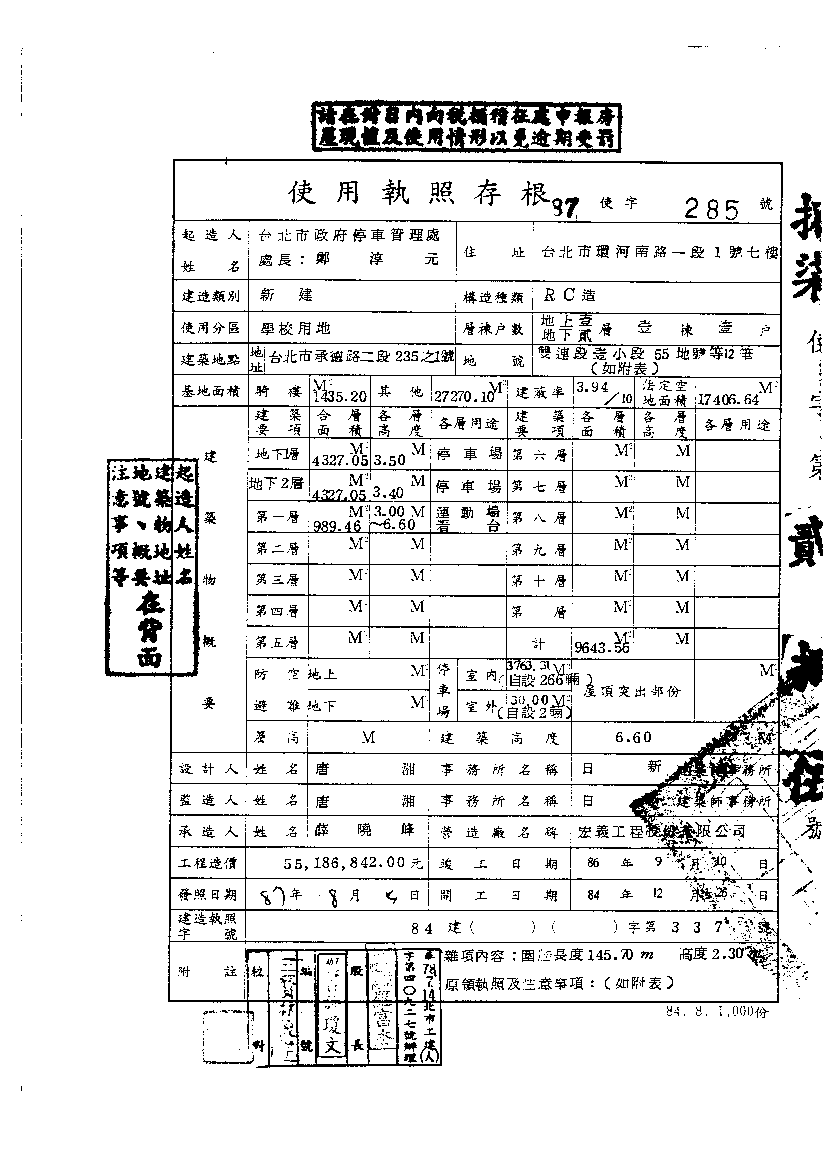 請在　日內向稅捐稽征處申報房
屋現值及使用情形以免逾期受罰
使用執照存根 87 使字 285 號
起造人姓名 台北市政府停車管理處 處長：鄭淳元 住址 台北市環河南路一段1號七樓
建造類別 新建 構造種類 RC造
使用分區 學校用地 層棟戶數 地上壹地下貳層壹棟壹户
建築地點 地址 台北市承德路二段235之1號 地號 雙連段壹小段55地號等12筆（如附表）
基地面積 騎樓 1435.20 M² 其他 27270.10 M² 建蔽率 3.94/10 法定空地面積 17406.64 M²
建築物概要
建築要項 各層面積 各層高度 各層用途 建築要項 各層面積 各層高度 各層用途
地下1層 4327.05 M² 3.50 M 停車場 第六層 M² M
地下2層 4327.05 M² 3.40 M 停車場 第七層 M² M
第一層 989.46 M² 3.00～6.60 M 運動場看台 第八層 M² M
第二層 M² M 第九層 M² M
第三層 M² M 第十層 M² M
第四層 M² M 第 層 M² M
第五層 M² M 計 9643.56 M² M
防空避難 地上 M² 停車場 室內 3763.31 M²（自設266輛） 屋頂突出部份 M²
地下 M² 室外 30.00 M²（自設2輛）
層高 M 建築高度 6.60 M
設計人 姓名 唐湘 事務所名稱 日新 建築師事務所
監造人 姓名 唐湘 事務所名稱 日 建築師事務所
承造人 姓名 薛曉峰 營造廠名稱 宏義工程股份有限公司
工程造價 55,186,842.00元 竣工日期 86年9月10日
發照日期 87年8月 日 開工日期 84年12月26日
建造執照字號 84建（ ）（ ）字第337號
附註 雜項內容：圍 長度145.70m 高度2.30m
原領執照及注意事項：（如附表）
84.8.1,000份
起造人姓名
建築物地址
地號、概要
注意事項等
在背面
校對
編號
瓊文
股長
78.7.14北市工建（人）
字第四〇九二七號辦理
使
字
第
貳
號